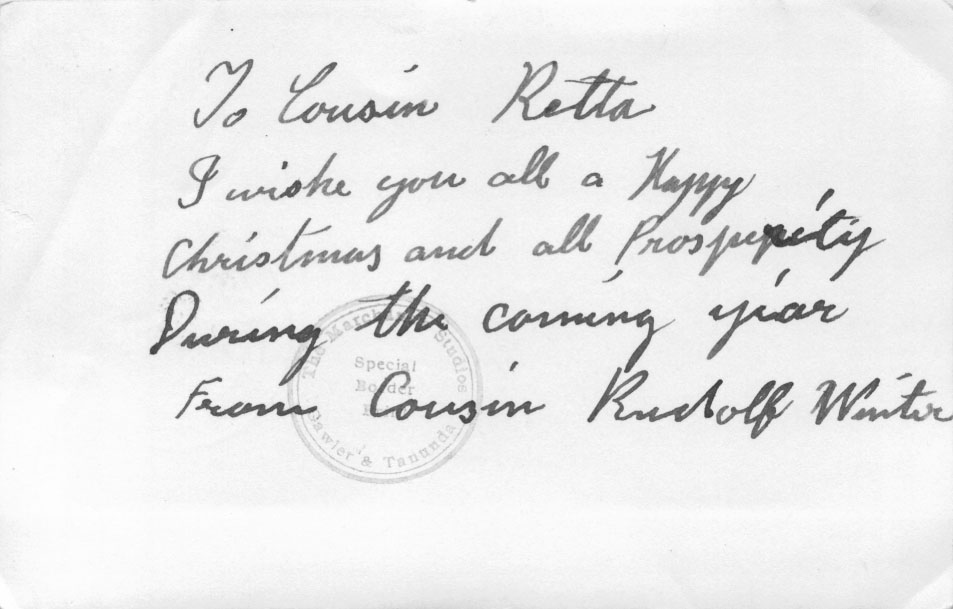 To Cousin Retta
I wishe you all a Happy
Christmas and all Prosperity
During the coming year
From Cousin Rudolf Winter
The Marchant Studios
Special
Border
Gawler & Tanunda